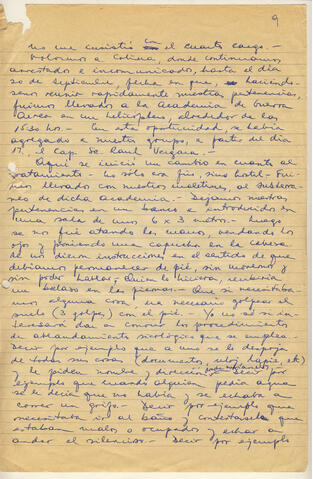 9
no me insistió con el cuarto cargo.-
Volvimos a Colina, donde continuamos
arrestados e incomunicados, hasta el día
30 de septiembre fecha en que, haciendo-
senos reunir rapidamente nuestras pertenencias,
fuimos llevados a la Academia de Guerra
Aérea en un helicóptero, alrededor de las
1630 hrs.- En esta oportunidad, se había
agregado a nuestro grupo, a partir del día
17, el Cap. Sr. Raul Vergara.-
Aquí se inició un cambio en cuanto al
tratamiento.- No sólo era frío, sino hostil.- Fui-
mos llevados con nuestros maletines, al subterrá-
neo de dicha academia.- Dejamos nuestras
pertenencias en un banco e introducidos en
una sala de unos 6 x 3 metros.- Luego
se nos fué atando las manos, vendando los
ojos y poniendo una capucha en la cabeza
Se nos dieron instrucciones en el sentido de que
debíamos permanecer de pié, sin movernos y
sin poder hablar.- Quien lo hiciera, recibiría
un balazo en las piernas.- Que si necesitaba-
mos alguna cosa, era necesario golpear el
suelo (3 golpes) con el pié.- Yo no sé si in-
teresará dar a conocer los procedimientos
de ablandamiento sicológico que se emplea.-
Decir por ejemplo que a uno se le despoja
de todas sus cosas (documentos, reloj, lapiz, etc)
y le piden nombre y dirección Decir por
ejemplo que cuando alguien pedía agua
se le decía que no había y se echaba a
correr un grifo.- Decir por ejemplo que
necesitaba ir al baño y contestarle que
estaban malos o ocupados y echar a
andar el silencioso.- Decir por ejemplo